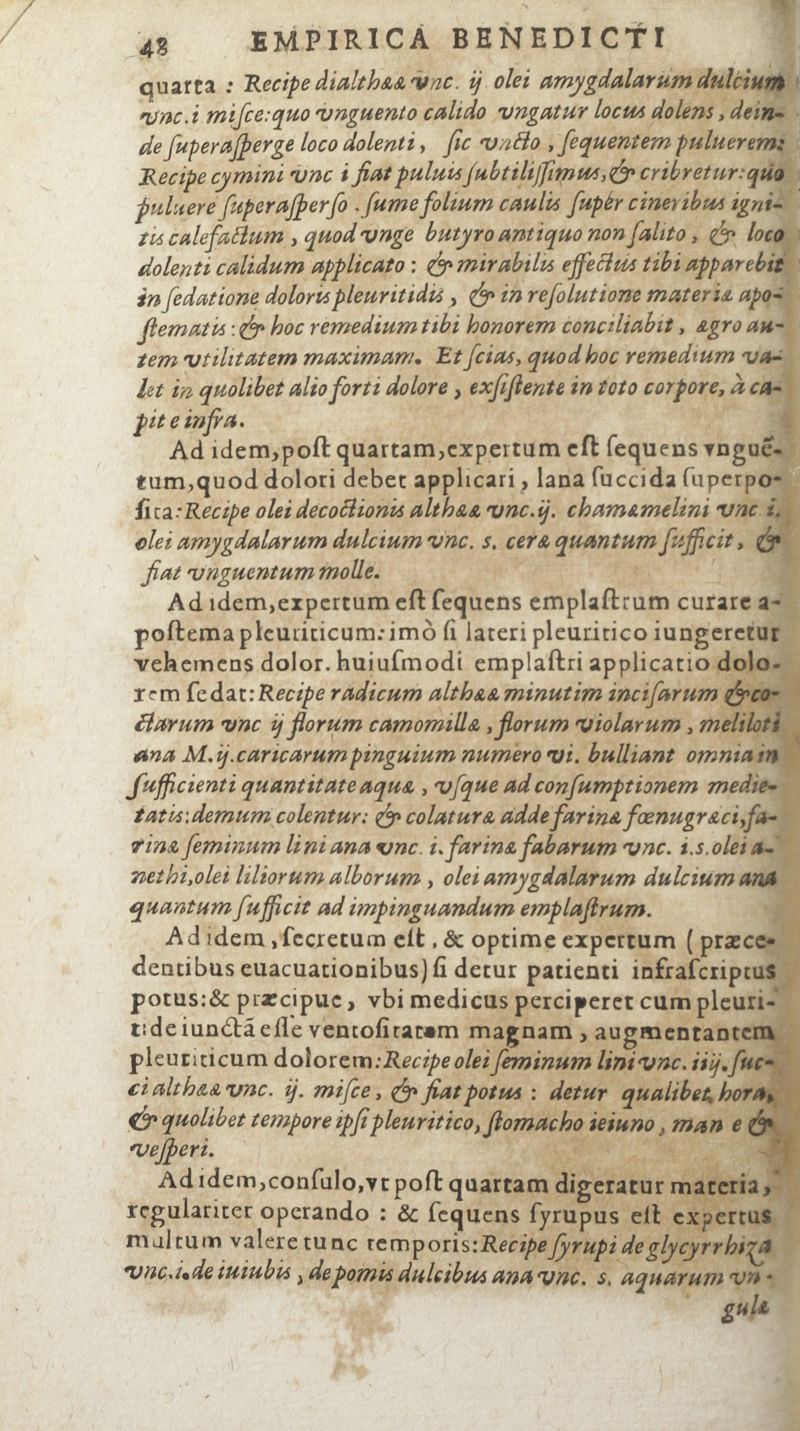 48 EMPIRICA BENEDICTI
quarta : Recipe dialthææ vnc. ij olei amygdalarum dulcium
vnc.i miſce:quo vnguento calido vngatur locus dolens, dein-
de ſuperaſperge loco dolenti, ſic vncto, ſequentem puluerem:
Recipe cymini vnc i fiat puluis ſubtiliſſimus,& cribretur:quo
puluere ſuperaſperſo. ſume folium caulis ſupèr cineribus igni-
tis calefactum, quod vnge butyro antiquo non ſalito, & loco
dolenti calidum applicato : & mirabilis effectus tibi apparebit
in ſedatione doloris pleuritidis, & in reſolutione materiæ apo-
ſtematis:& hoc remedium tibi honorem conciliabit, ægro au-
tem vtilitatem maximam. Et ſcias, quod hoc remedium va-
let in quolibet alio forti dolore, exſiſtente in toto corpore, à ca-
pit e infra.
Ad idem,poſt quartam,expertum eſt ſequens vnguē-
tum,quod dolori debet applicari, lana ſuccida ſuperpo-
ſita:Recipe olei decoctionis althææ vnc.ij. chamæmelini vnc i.
olei amygdalarum dulcium vnc. s. ceræ quantum ſufficit, &
fiat vnguentum molle.
Ad idem,expertum eſt ſequens emplaſtrum curare a-
poſtema pleuriticum:imò ſi lateri pleuritico iungeretur
vehemens dolor. huiuſmodi emplaſtri applicatio dolo-
rem ſedat:Recipe radicum althææ minutim inciſarum & co-
ctarum vnc ij florum camomillæ, florum violarum, meliloti
ana M.ij.caricarum pinguium numero vi. bulliant omnia in
ſufficienti quantitate aquæ, vſque ad conſumptionem medie-
tatis:demum colentur: & colaturæ adde farinæ fœnugræci,fa-
rinæ ſeminum lini ana vnc. i. farinæ fabarum vnc. i.s.olei a-
nethi,olei liliorum alborum, olei amygdalarum dulcium ana
quantum ſufficit ad impinguandum emplaſtrum.
Ad idem, ſecretum eſt, & optime expertum (præce-
dentibus euacuationibus) ſi detur patienti infraſcriptus
potus:& præcipue, vbi medicus perciperet cum pleuri-
tide iunctã eſſe ventoſitatem magnam, augmentantem
pleuriticum dolorem:Recipe olei ſeminum lini vnc. iiij. ſuc-
ci althææ vnc. ij. miſce, & fiat potus : detur qualibet, hora,
& quolibet tempore ipſi pleuritico, ſtomacho ieiuno, man e &
veſperi.
Ad idem,conſulo,vt poſt quartam digeratur materia,
regulariter operando : & ſequens ſyrupus eſt expertus
multum valere tunc temporis:Recipe ſyrupi de glycyrrhiza
vnc.i.de iuiubis, de pomis dulcibus ana vnc. s. aquarum vn-
gulæ